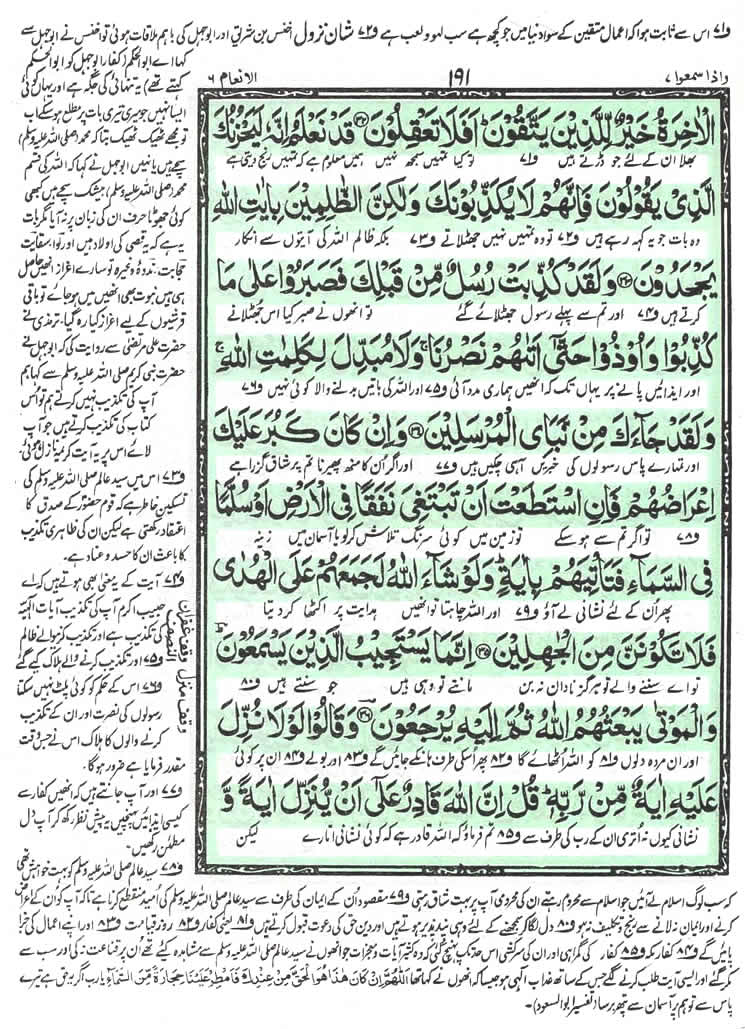 و۷۱ اس سے ثابت ہوا کہ اعمال متقین کے سوا دنیا میں جو کچھ ہے سب لہو و لعب ہے و۷۲ شان نزول اخنس بن شریق اور ابوجہل کی باہم ملاقات ہوئی تو اخنس نے ابوجہل سے
واذا سمعوا ۷
۱۹۱
الانعام ۶
الْاٰخِرَةُ خَیْرٌ لِّلَّذِیْنَ یَتَّقُوْنَ اَفَلَا تَعْقِلُوْنَ ۝۳۲ قَدْ نَعْلَمُ اِنَّهٗ لَیَحْزُنُكَ
بھلا ان کے لئے جو ڈرتے ہیں و۷۱ تو کیا تمہیں سمجھ نہیں ہمیں معلوم ہے کہ تمہیں رنج دیتی ہے
الَّذِیْ یَقُوْلُوْنَ فَاِنَّهُمْ لَا یُكَذِّبُوْنَكَ وَلٰكِنَّ الظّٰلِمِیْنَ بِاٰیٰتِ اللّٰهِ
وہ بات جو یہ کہہ رہے ہیں و۷۲ تو وہ تمہیں نہیں جھٹلاتے و۷۳ بلکہ ظالم اللہ کی آیتوں سے انکار
یَجْحَدُوْنَ ۝۳۳ وَلَقَدْ كُذِّبَتْ رُسُلٌ مِّنْ قَبْلِكَ فَصَبَرُوْا عَلٰی مَا
کرتے ہیں و۷۴ اور تم سے پہلے رسول جھٹلائے گئے تو انھوں نے صبر کیا اس جھٹلانے
كُذِّبُوْا وَاُوْذُوْا حَتّٰۤی اَتٰىهُمْ نَصْرُنَا ۚ وَلَا مُبَدِّلَ لِكَلِمٰتِ اللّٰهِ ۚ
اور ایذائیں پانے پر یہاں تک کہ انھیں ہماری مدد آئی و۷۵ اور اللہ کی باتیں بدلنے والا کوئی نہیں و۷۶
وَلَقَدْ جَآءَكَ مِنْ نَّبَاِی الْمُرْسَلِیْنَ ۝۳۴ وَاِنْ كَانَ كَبُرَ عَلَیْكَ
اور تمہارے پاس رسولوں کی خبریں آہی چکیں ہیں و۷۷ اور اگر ان کا منھ پھیرنا تم پر شاق گزرا ہے
اِعْرَاضُهُمْ فَاِنِ اسْتَطَعْتَ اَنْ تَبْتَغِیَ نَفَقًا فِی الْاَرْضِ اَوْ سُلَّمًا
و۷۸ تو اگر تم سے ہو سکے تو زمین میں کوئی سرنگ تلاش کرلو یا آسمان میں زینہ
فِی السَّمَآءِ فَتَاْتِیَهُمْ بِاٰیَةٍ ؕ وَلَوْ شَآءَ اللّٰهُ لَجَمَعَهُمْ عَلَی الْهُدٰی
پھر ان کے لئے نشانی لے آؤ و۷۹ اور اللہ چاہتا تو انھیں ہدایت پر اکٹھا کر دیتا
فَلَا تَكُوْنَنَّ مِنَ الْجٰهِلِیْنَ ۝۳۵ اِنَّمَا یَسْتَجِیْبُ الَّذِیْنَ یَسْمَعُوْنَ ؕ
تو اے سننے والے تو ہرگز نادان نہ بن مانتے تو وہی ہیں جو سنتے ہیں و۸۰
وَالْمَوْتٰی یَبْعَثُهُمُ اللّٰهُ ثُمَّ اِلَیْهِ یُرْجَعُوْنَ ۝۳۶ وَقَالُوْا لَوْلَا نُزِّلَ
اور ان مردہ دلوں و۸۱ کو اللہ اٹھائے گا و۸۲ پھر اسکی طرف ہانکے جائیں گے و۸۳ اور بولے و۸۴ ان پر کوئی
عَلَیْهِ اٰیَةٌ مِّنْ رَّبِّهٖ ؕ قُلْ اِنَّ اللّٰهَ قَادِرٌ عَلٰۤی اَنْ یُّنَزِّلَ اٰیَةً وَّ
نشانی کیوں نہ اتری ان کے رب کی طرف سے و۸۵ تم فرماؤ کہ اللہ قادر ہے کہ کوئی نشانی اتارے لیکن
کہا اے ابوالحکم (کفار ابوجہل کو ابوالحکم
کہتے تھے) یہ تنہائی کی جگہ ہے اور یہاں کوئی
ایسا نہیں جو میری تیری بات پر مطلع ہو سکے اب
تو مجھے ٹھیک ٹھیک بتا کہ محمد (صلی اللہ علیہ وسلم)
سچے ہیں یا نہیں ابوجہل نے کہا کہ اللہ کی قسم
محمد (صلی اللہ علیہ وسلم) بیشک سچے ہیں کبھی
کوئی جھوٹا حرف ان کی زبان پر نہ آیا مگر بات
یہ ہے کہ یہ قصی کی اولاد ہیں اور لوا سقایت
حجابت، ندوہ وغیرہ تو سارے اعزاز انھیں حاصل
ہی ہیں نبوت بھی انھیں میں ہوجائے تو باقی
قرشیوں کے لیے اعزاز کیا رہ گیا، ترمذی نے
حضرت علی مرتضیٰ سے روایت کی کہ ابوجہل نے
حضرت نبی کریم صلی اللہ علیہ وسلم سے کہا ہم
آپ کی تکذیب نہیں کرتے ہم تو اس
کتاب کی تکذیب کرتے ہیں جو آپ
لائے اس پر یہ آیت کریمہ نازل ہوئی،
و۷۳ اس میں سید عالم صلی اللہ علیہ وسلم کی
تسکین خاطر ہے کہ قوم حضور کے صدق کا
اعتقاد رکھتی ہے لیکن ان کی ظاہری تکذیب
کا باعث ان کا حسد و عناد ہے۔
و۷۴ آیت کے یہ معنی بھی ہوتے ہیں کہ اے
حبیب اکرم آپ کی تکذیب آیات الٰہیہ
کی تکذیب ہے اور تکذیب کرنیوالے ظالم
و۷۵ اور تکذیب کرنے والے ہلاک کیے گئے
و۷۶ اس کے حکم کو کوئی پلٹ نہیں سکتا
رسولوں کی نصرت اور ان کے تکذیب
کرنے والوں کا ہلاک اس نے جس وقت
مقدر فرمایا ہے ضرور ہوگا۔
و۷۷ اور آپ جانتے ہیں کہ انھیں کفار سے
کیسی ایذائیں پہنچیں یہ پیش نظر رکھ کر آپ دل
مطمئن رکھیں۔
و۷۸ سید عالم صلی اللہ علیہ وسلم کو بہت خواہش تھی
وقف غفران
النصف
وقف منزل
کہ سب لوگ اسلام لے آئیں جو اسلام سے محروم رہتے ان کی محرومی آپ پر بہت شاق رہتی و۷۹ مقصود ان کے ایمان کی طرف سے سید عالم صلی اللہ علیہ وسلم کی امید منقطع کرنا ہے تاکہ آپ کو ان کے اعراض
کرنے اور ایمان نہ لانے سے رنج و تکلیف نہ ہو و۸۰ دل لگا کر سمجھنے کے لئے وہی پند پذیر ہوتے ہیں اور دین حق کی دعوت قبول کرتے ہیں و۸۱ یعنی کفار و۸۲ روز قیامت و۸۳ اور اپنے اعمال کی جزا
پائیں گے و۸۴ کفار مکہ و۸۵ کفار کی گمراہی اور ان کی سرکشی اس حد تک پہنچ گئی کہ وہ کثیر آیات و معجزات جو انھوں نے سید عالم صلی اللہ علیہ وسلم سے مشاہدہ کیے تھے ان پر قناعت نہ کی اور سب سے
مکر گئے اور ایسی آیت طلب کرنے لگے جس کے ساتھ عذاب الٰہی ہو جیسا کہ انھوں نے کہا تھا اَللّٰهُمَّ اِنْ كَانَ هٰذَا هُوَ الْحَقَّ مِنْ عِنْدِكَ فَاَمْطِرْ عَلَیْنَا حِجَارَةً مِّنَ السَّمَآءِ یارب اگر یہ حق ہے تیرے
پاس سے تو ہم پر آسمان سے پتھر برسا (تفسیر ابوالسعود)